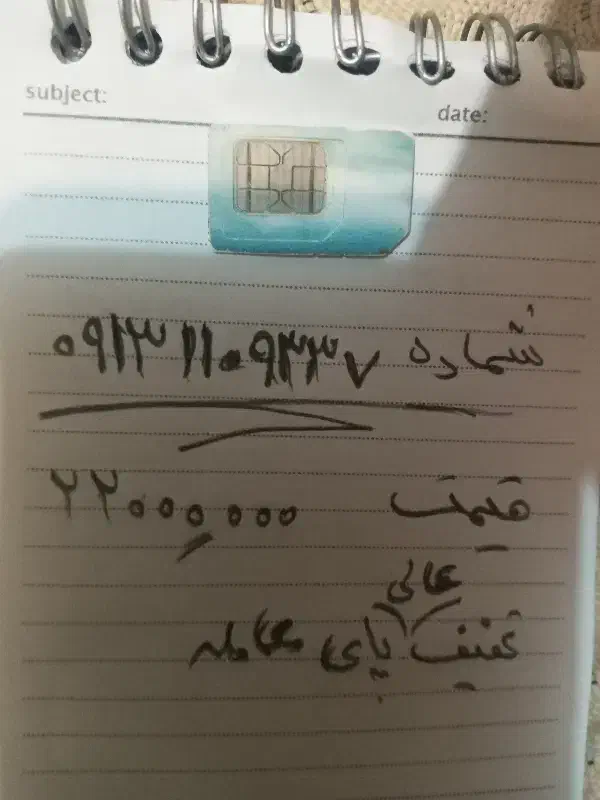 subject:
date:
شماره ۰۹۱۳۱۱۰۹۳۳۷
قیمت ۲۲۰۰۰,۰۰۰
عالی
تخفیف پای معامله